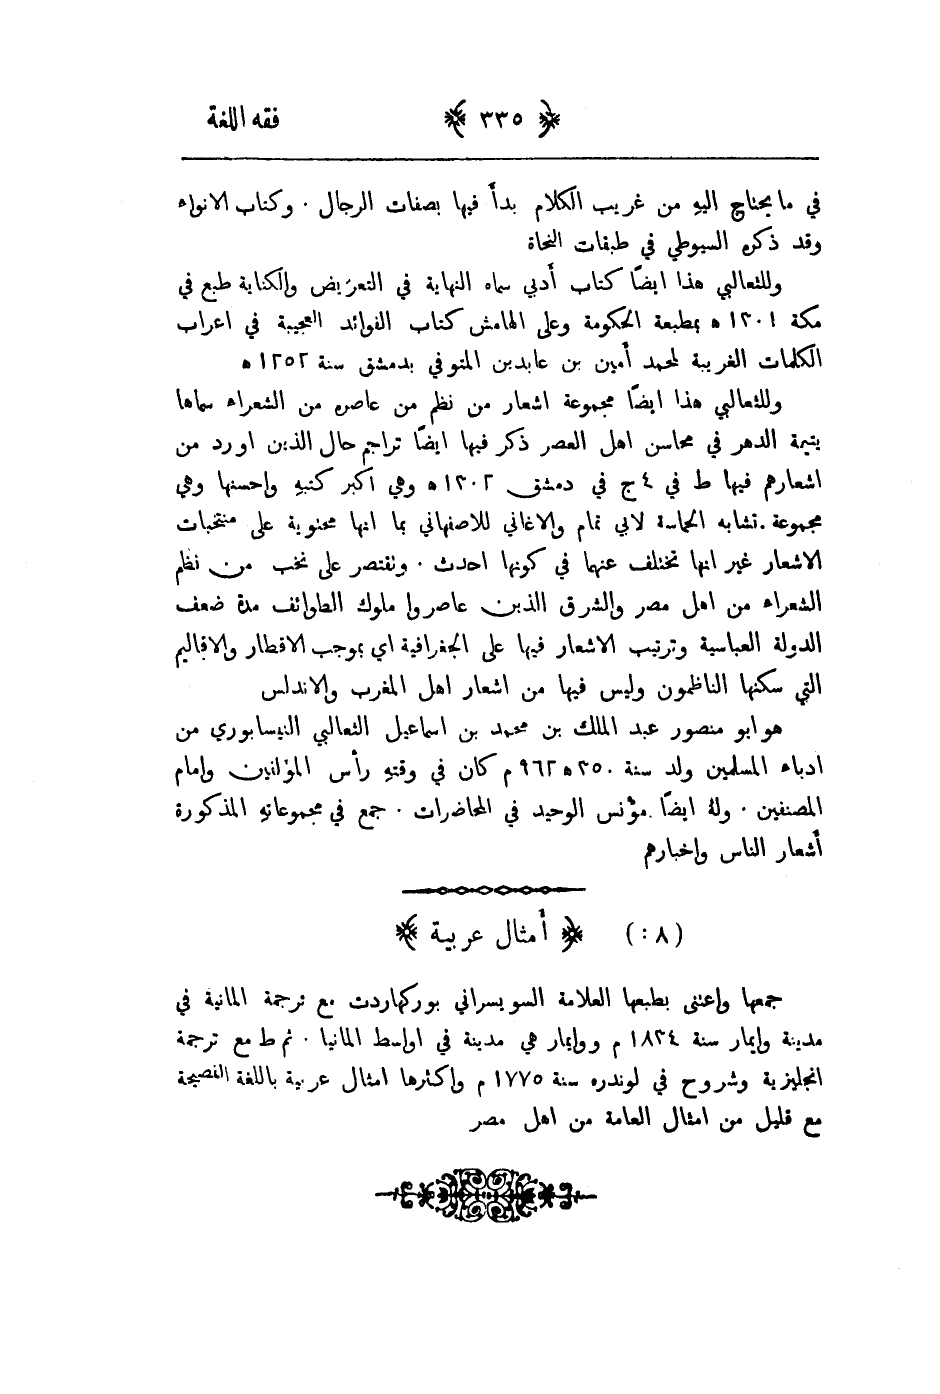 ﴿ ٣٣٥ ﴾ فقه اللغة
في ما يحتاج اليهِ من غريب الكلام بدأَ فيها بصفات الرجال ٠ وكتاب الانواء
وقد ذكره السيوطي في طبقات النحاة
وللثعالبي هذا ايضًا كتاب أدبي سماه النهاية في التعريض والكناية طبع في
مكة ١٣٠١ ه بمطبعة الحكومة وعلى الهامش كتاب الفوائد العجيبة في اعراب
الكلمات الغريبة لمحمد أمين بن عابدين المتوفي بدمشق سنة ١٢٥٢ ه
وللثعالبي هذا ايضًا مجموعة اشعار من نظم من عاصره من الشعراء سماها
يتيمة الدهر في محاسن اهل العصر ذكر فيها ايضًا تراجم حال الذين اورد من
اشعارهم فيها ط في ٤ ج في دمشق ١٣٠٢ ه وهي اكبر كتبهِ واحسنها وهي
مجموعة تشابه الحماسة لابي تمام والاغاني للاصفهاني بما انها محتوية على منتخبات
الاشعار غير انها تختلف عنهما في كونها احدث ٠ وتقتصر على نخب من نظم
الشعراء من اهل مصر والشرق الذين عاصروا ملوك الطوائف مدة ضعف
الدولة العباسية وترتيب الاشعار فيها على الجغرافية اي بموجب الاقطار والاقاليم
التي سكنها الناظمون وليس فيها من اشعار اهل المغرب والاندلس
هو ابو منصور عبد الملك بن محمد بن اسماعيل الثعالبي النيسابوري من
ادباء المسلمين ولد سنة ٣٥٠ ه ٩٦٢ م كان في وقتهِ رأس المؤلفين وامام
المصنفين ٠ ولهُ ايضًا مؤنس الوحيد في المحاضرات ٠ جمع في مجموعاتهِ المذكورة
أشعار الناس واخبارهم
(٨ :) ﴿ أمثال عربية ﴾
جمعها واعتنى بطبعها العلامة السويسراني بوركهاردت مع ترجمة المانية في
مدينة وايمار سنة ١٨٣٤ م ووايمار هي مدينة في اواسط المانيا ٠ ثم ط مع ترجمة
انجليزية وشروح في لوندره سنة ١٧٧٥ م واكثرها امثال عربية باللغة الفصيحة
مع قليل من امثال العامة من اهل مصر